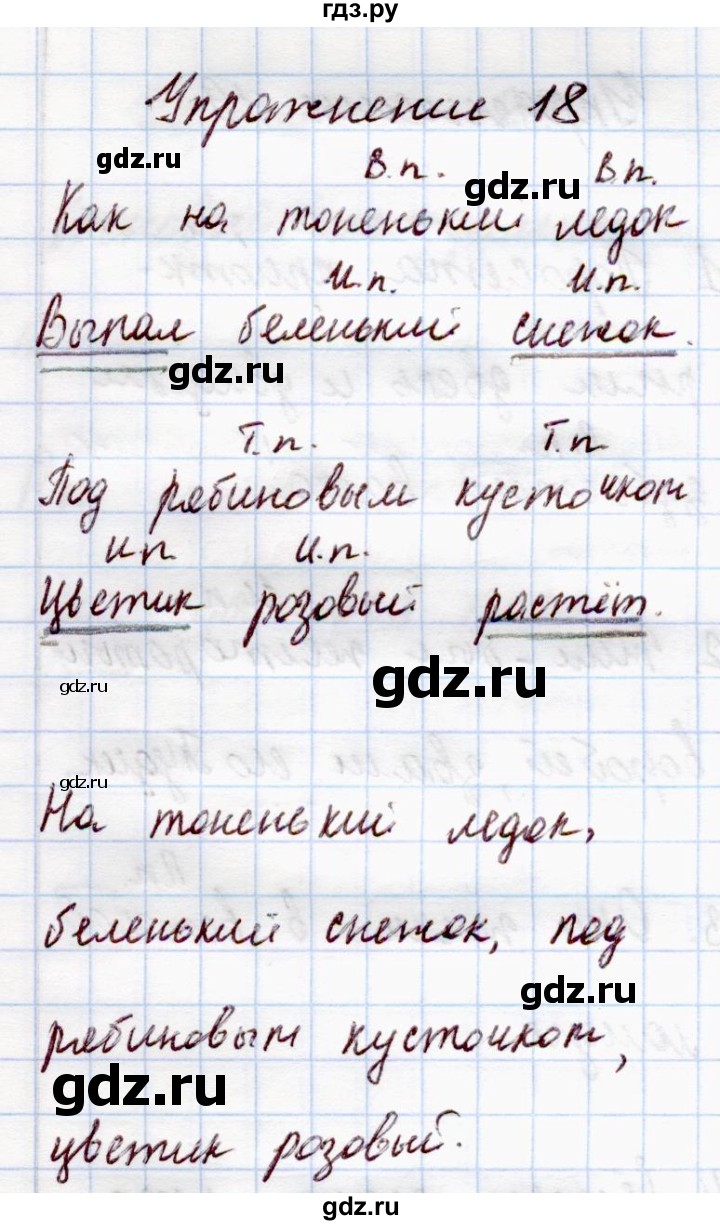 гдз.ру
Упражнение 18
gdz.ru
В.п. В.п.
gdz.ru
Как на тоненький ледок
И.п. И.п.
Выпал беленький снежок.
gdz.ru
Т.п. Т.п
Под рябиновым кусточком
И.п. И.п.
Цветик розовый растёт.
gdz.ru
gdz.ru
gdz.ru
На тоненький ледок,
беленький снежок, под
gdz.ru
рябиновым кусточком,
gdz.ru
цветик розовый.
gdz.ru